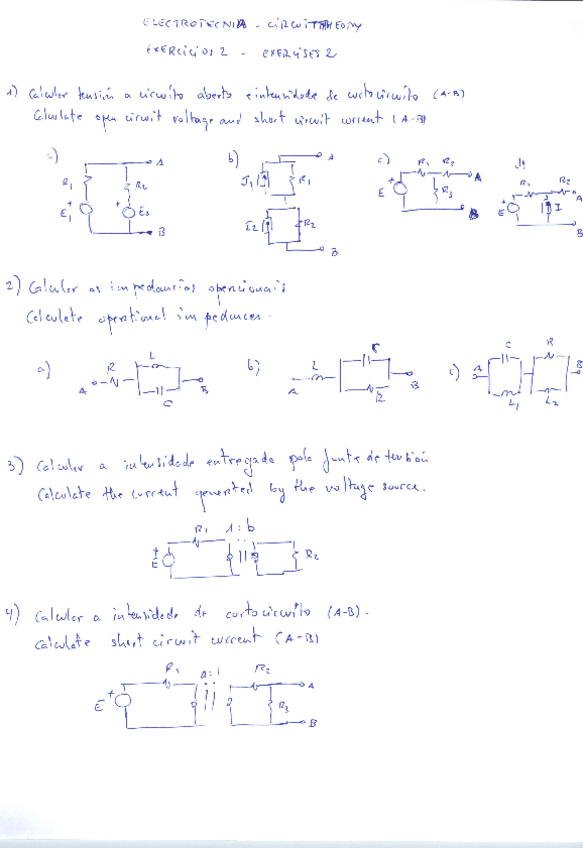 ELECTROTECNIA - CIRCUIT THEORY
EXERCICIOS 2 - EXERCISES 2
1) Calcular tensión a circuíto aberto e intensidade de curtocircuíto (A-B)
Calculate open circuit voltage and short circuit current (A-B)
a) R1 E1 + R2 + E2 A B
b) I1 R1 I2 R2 A B
c) E + R1 R2 R3 A B
d) E + R1 I R2 A B
2) Calcular as impedancias operacionais
Calculate operational impedances.
a) A R L C B
b) A L C R B
c) A C L1 R L2 B
3) Calcular a intensidade entregada pola fonte de tensión.
Calculate the current generated by the voltage source.
R1 1:b
+ E R2
4) Calcular a intensidade de curtocircuíto (A-B).
Calculate short circuit current (A-B)
R1 a:1 R2
E + R3 A B